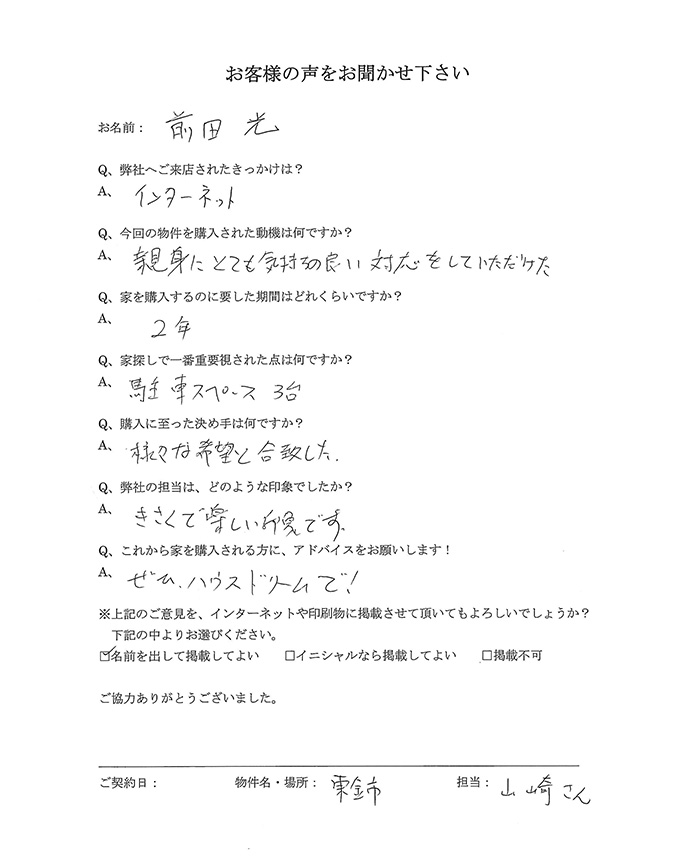 お客様の声をお聞かせ下さい
お名前： 前田 光
Q、弊社へご来店されたきっかけは？
A、 インターネット
Q、今回の物件を購入された動機は何ですか？
A、 親身にとても気持ちの良い対応をしていただけた
Q、家を購入するのに要した期間はどれくらいですか？
A、 2年
Q、家探しで一番重要視された点は何ですか？
A、 駐車スペース 3台
Q、購入に至った決め手は何ですか？
A、 様々な希望と合致した.
Q、弊社の担当は、どのような印象でしたか？
A、 きさくで楽しい印象です。
Q、これから家を購入される方に、アドバイスをお願いします！
A、 ぜひ、ハウスドリームで！
※上記のご意見を、インターネットや印刷物に掲載させて頂いてもよろしいでしょうか？
下記の中よりお選びください。
☑名前を出して掲載してよい □イニシャルなら掲載してよい □掲載不可
ご協力ありがとうございました。
ご契約日： 物件名・場所： 東金市 担当： 山崎さん